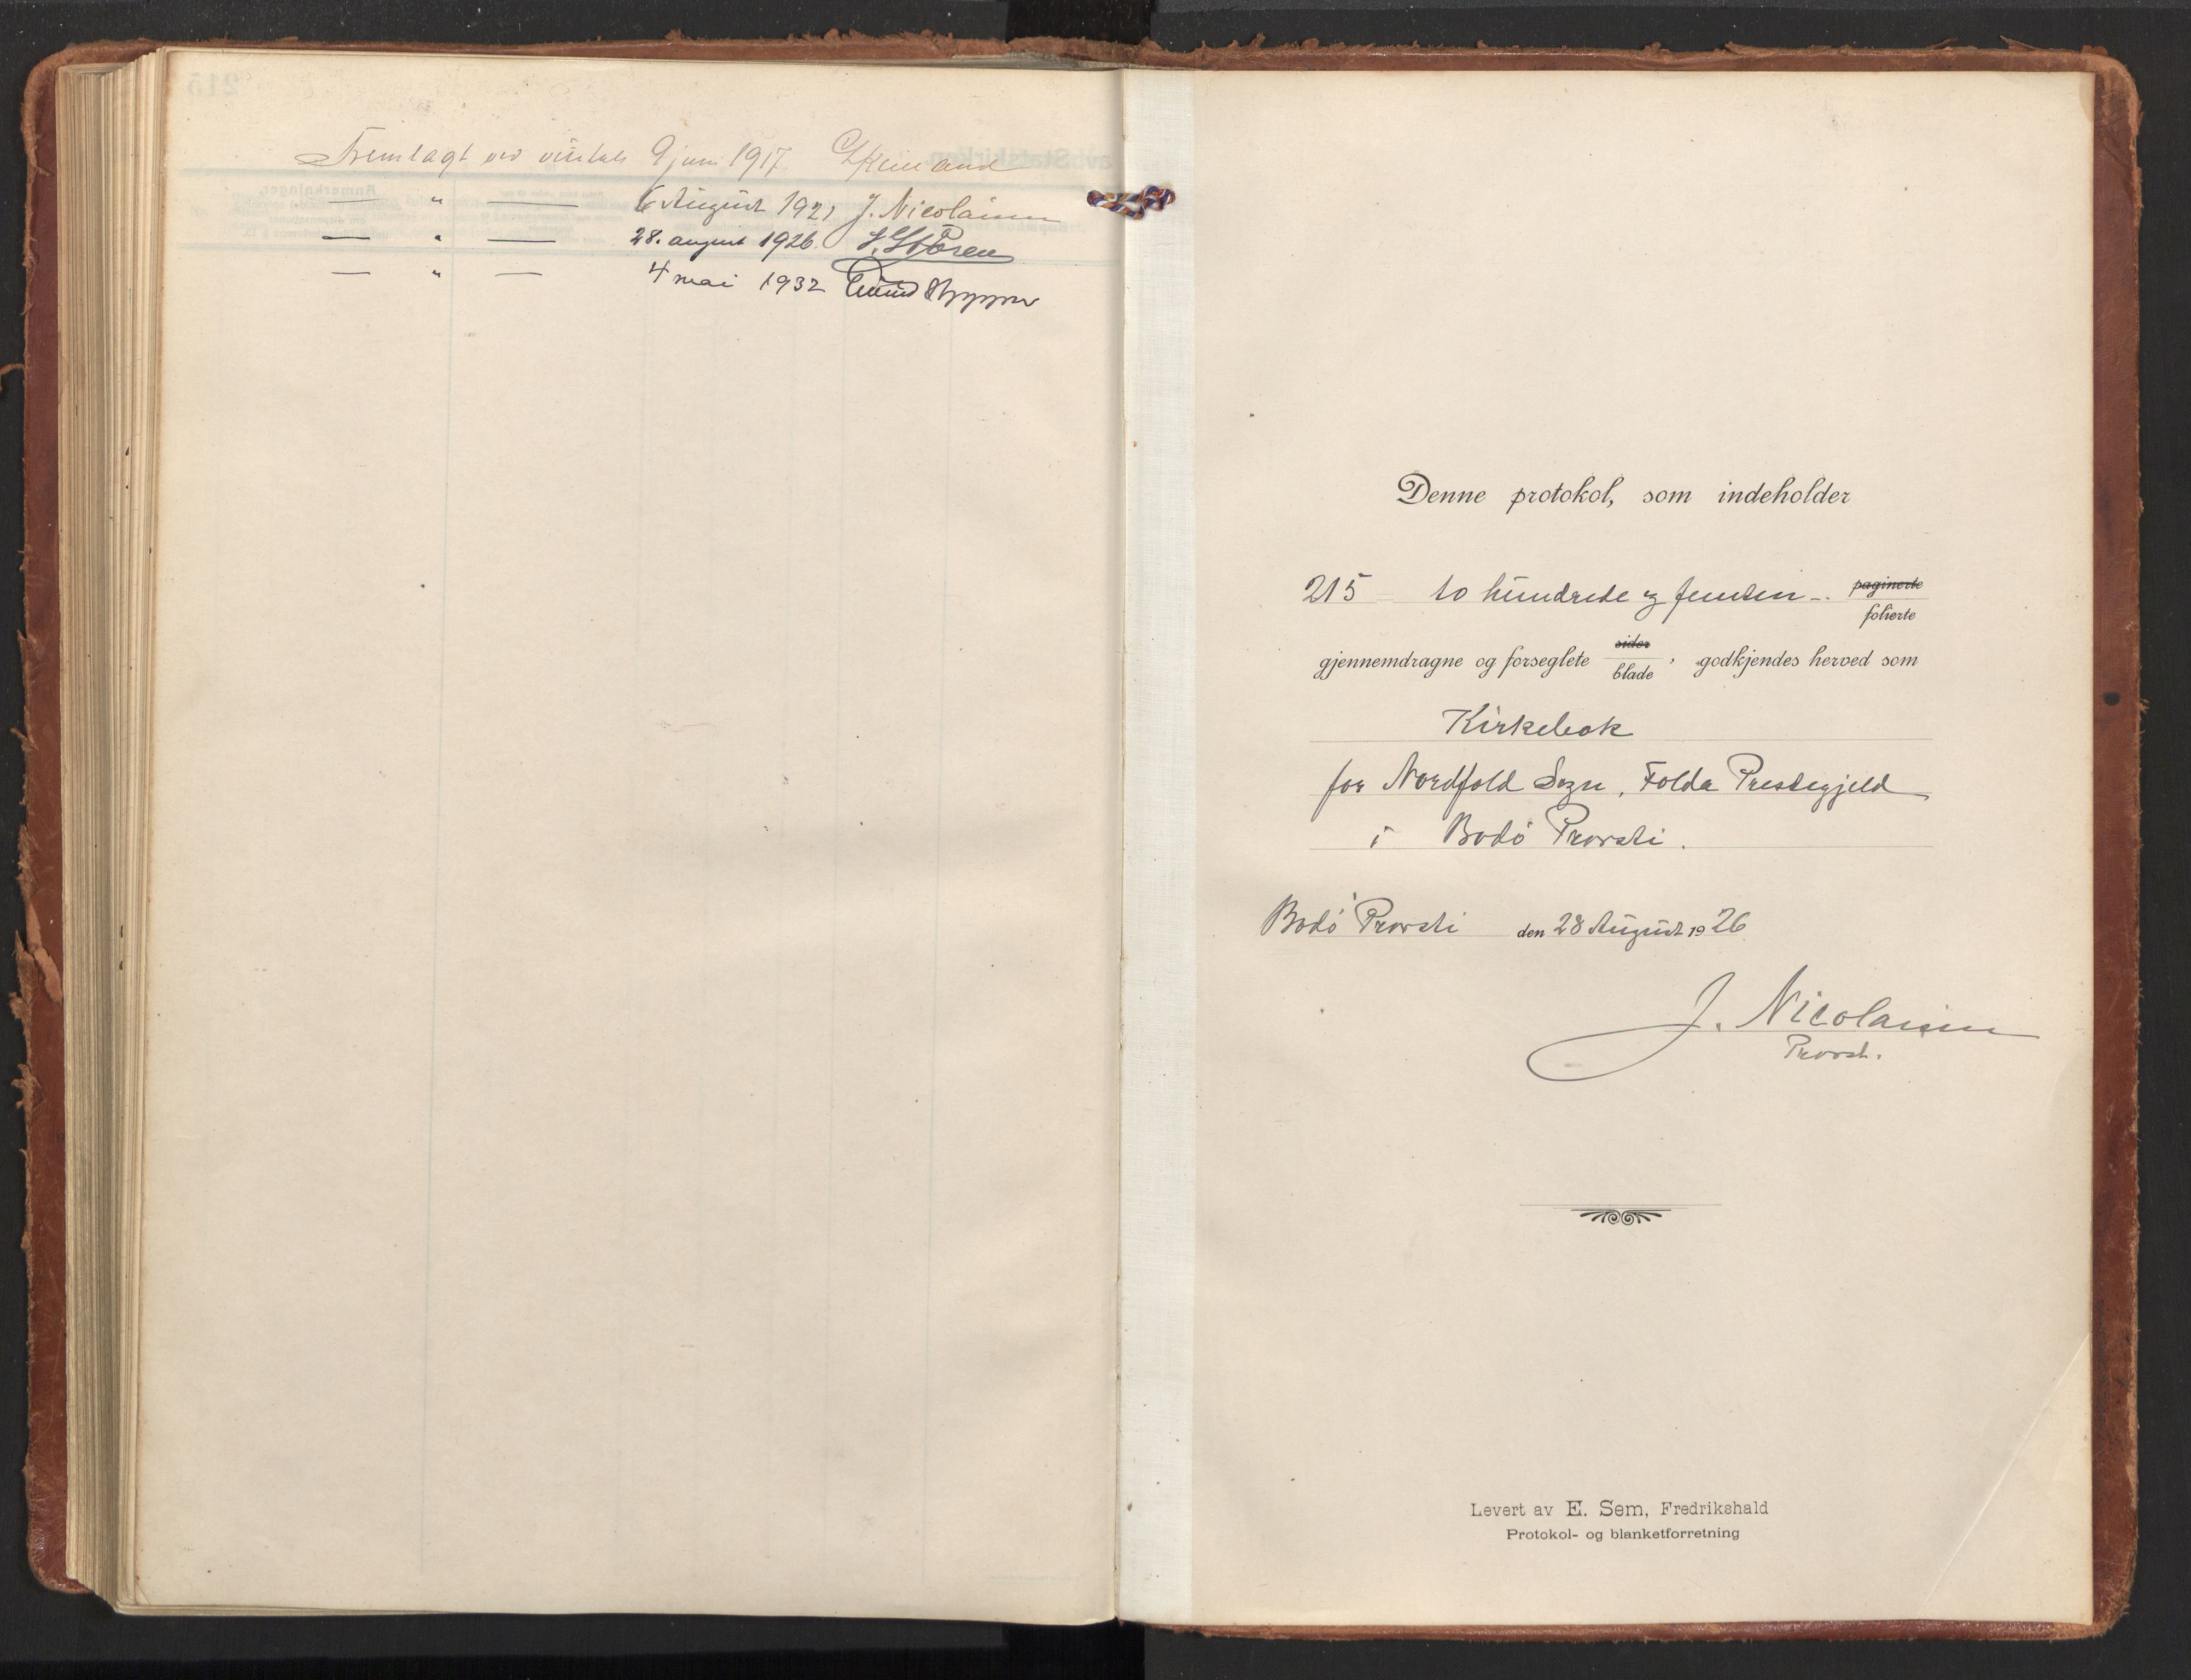 Fremlagt ved visitats 9 juni 1917
— " — 6 August 1921 J. Nicolaisen
— " — 28. august 1926. S. Støren
— " — 4 mai 1932 Eivind Berggrav
Denne protokol, som indeholder
215 — to hundrede og femten —. paginerte
folierte
gjennemdragne og forseglete sider
blade, godkjendes herved som
Kirkebok
for Nordfold Sogn, Folda Prestegjeld
i Bodö Provsti.
Bodö Provsti den 28 August 1926
J. Nicolaisen
Provst.
Levert av E. Sem, Fredrikshald
Protokol- og blanketforretning